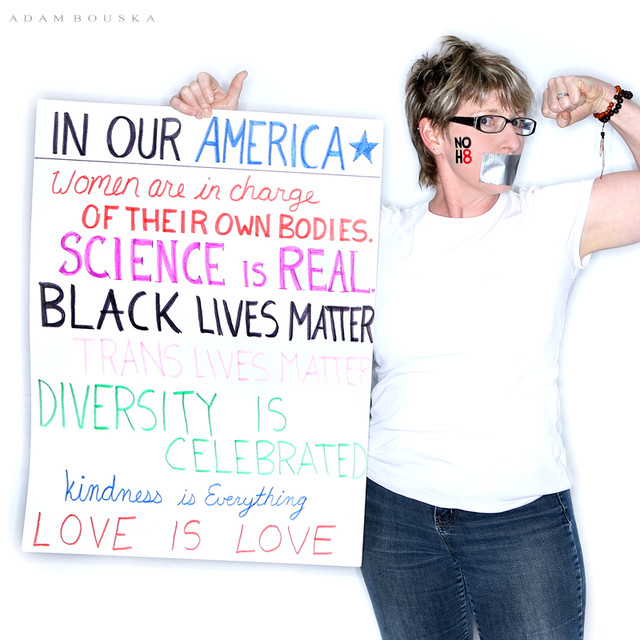 ADAM BOUSKA
IN OUR AMERICA
Women are in charge
OF THEIR OWN BODIES.
SCIENCE is REAL.
BLACK LIVES MATTER
TRANS LIVES MATTER
DIVERSITY IS
CELEBRATED
kindness is Everything
LOVE IS LOVE
NO
H8